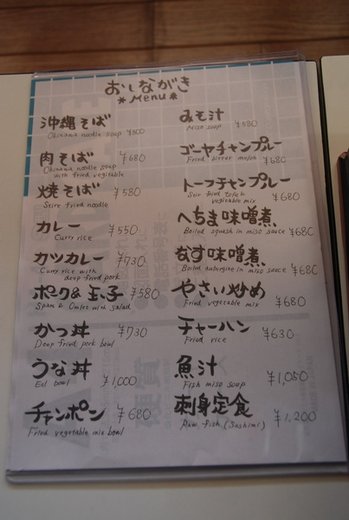 おしながき
*Menu*
沖縄そば
Okinawa noodle soup ¥500
肉そば ¥680
Okinawa noodle soup
with fried vegetable
焼そば ¥580
Stire fried noodle
カレー ¥550
Curry rice
カツカレー ¥730
Curry rice with
deep fried pork
ポーク&玉子 ¥580
Spam & Omlet with salad
かつ丼 ¥730
Deep fried pork bowl
うな丼 ¥1,000
Eel bowl
チャンポン ¥680
Fried vegetable mix bowl
みそ汁 ¥580
Miso soup
ゴーヤチャンプルー
Fried bitter melon ¥680
トーフチャンプルー
Stir fried tofu &
vegetable mix ¥680
へちま味噌煮
Boiled squash in miso sauce ¥680
なす味噌煮
Boiled aubergine in miso sauce ¥680
やさい炒め
Fried vegetable mix ¥680
チャーハン ¥630
Fried rice
魚汁 ¥1,050
Fish miso soup
刺身定食 ¥1,200
Raw fish (Sashimi)